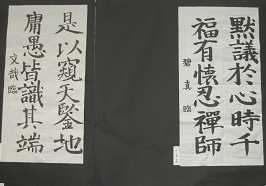 默議於心時千
福有懷忍禪師
碧真臨
是以窺天鑒地
庸愚皆識其端
文哉臨